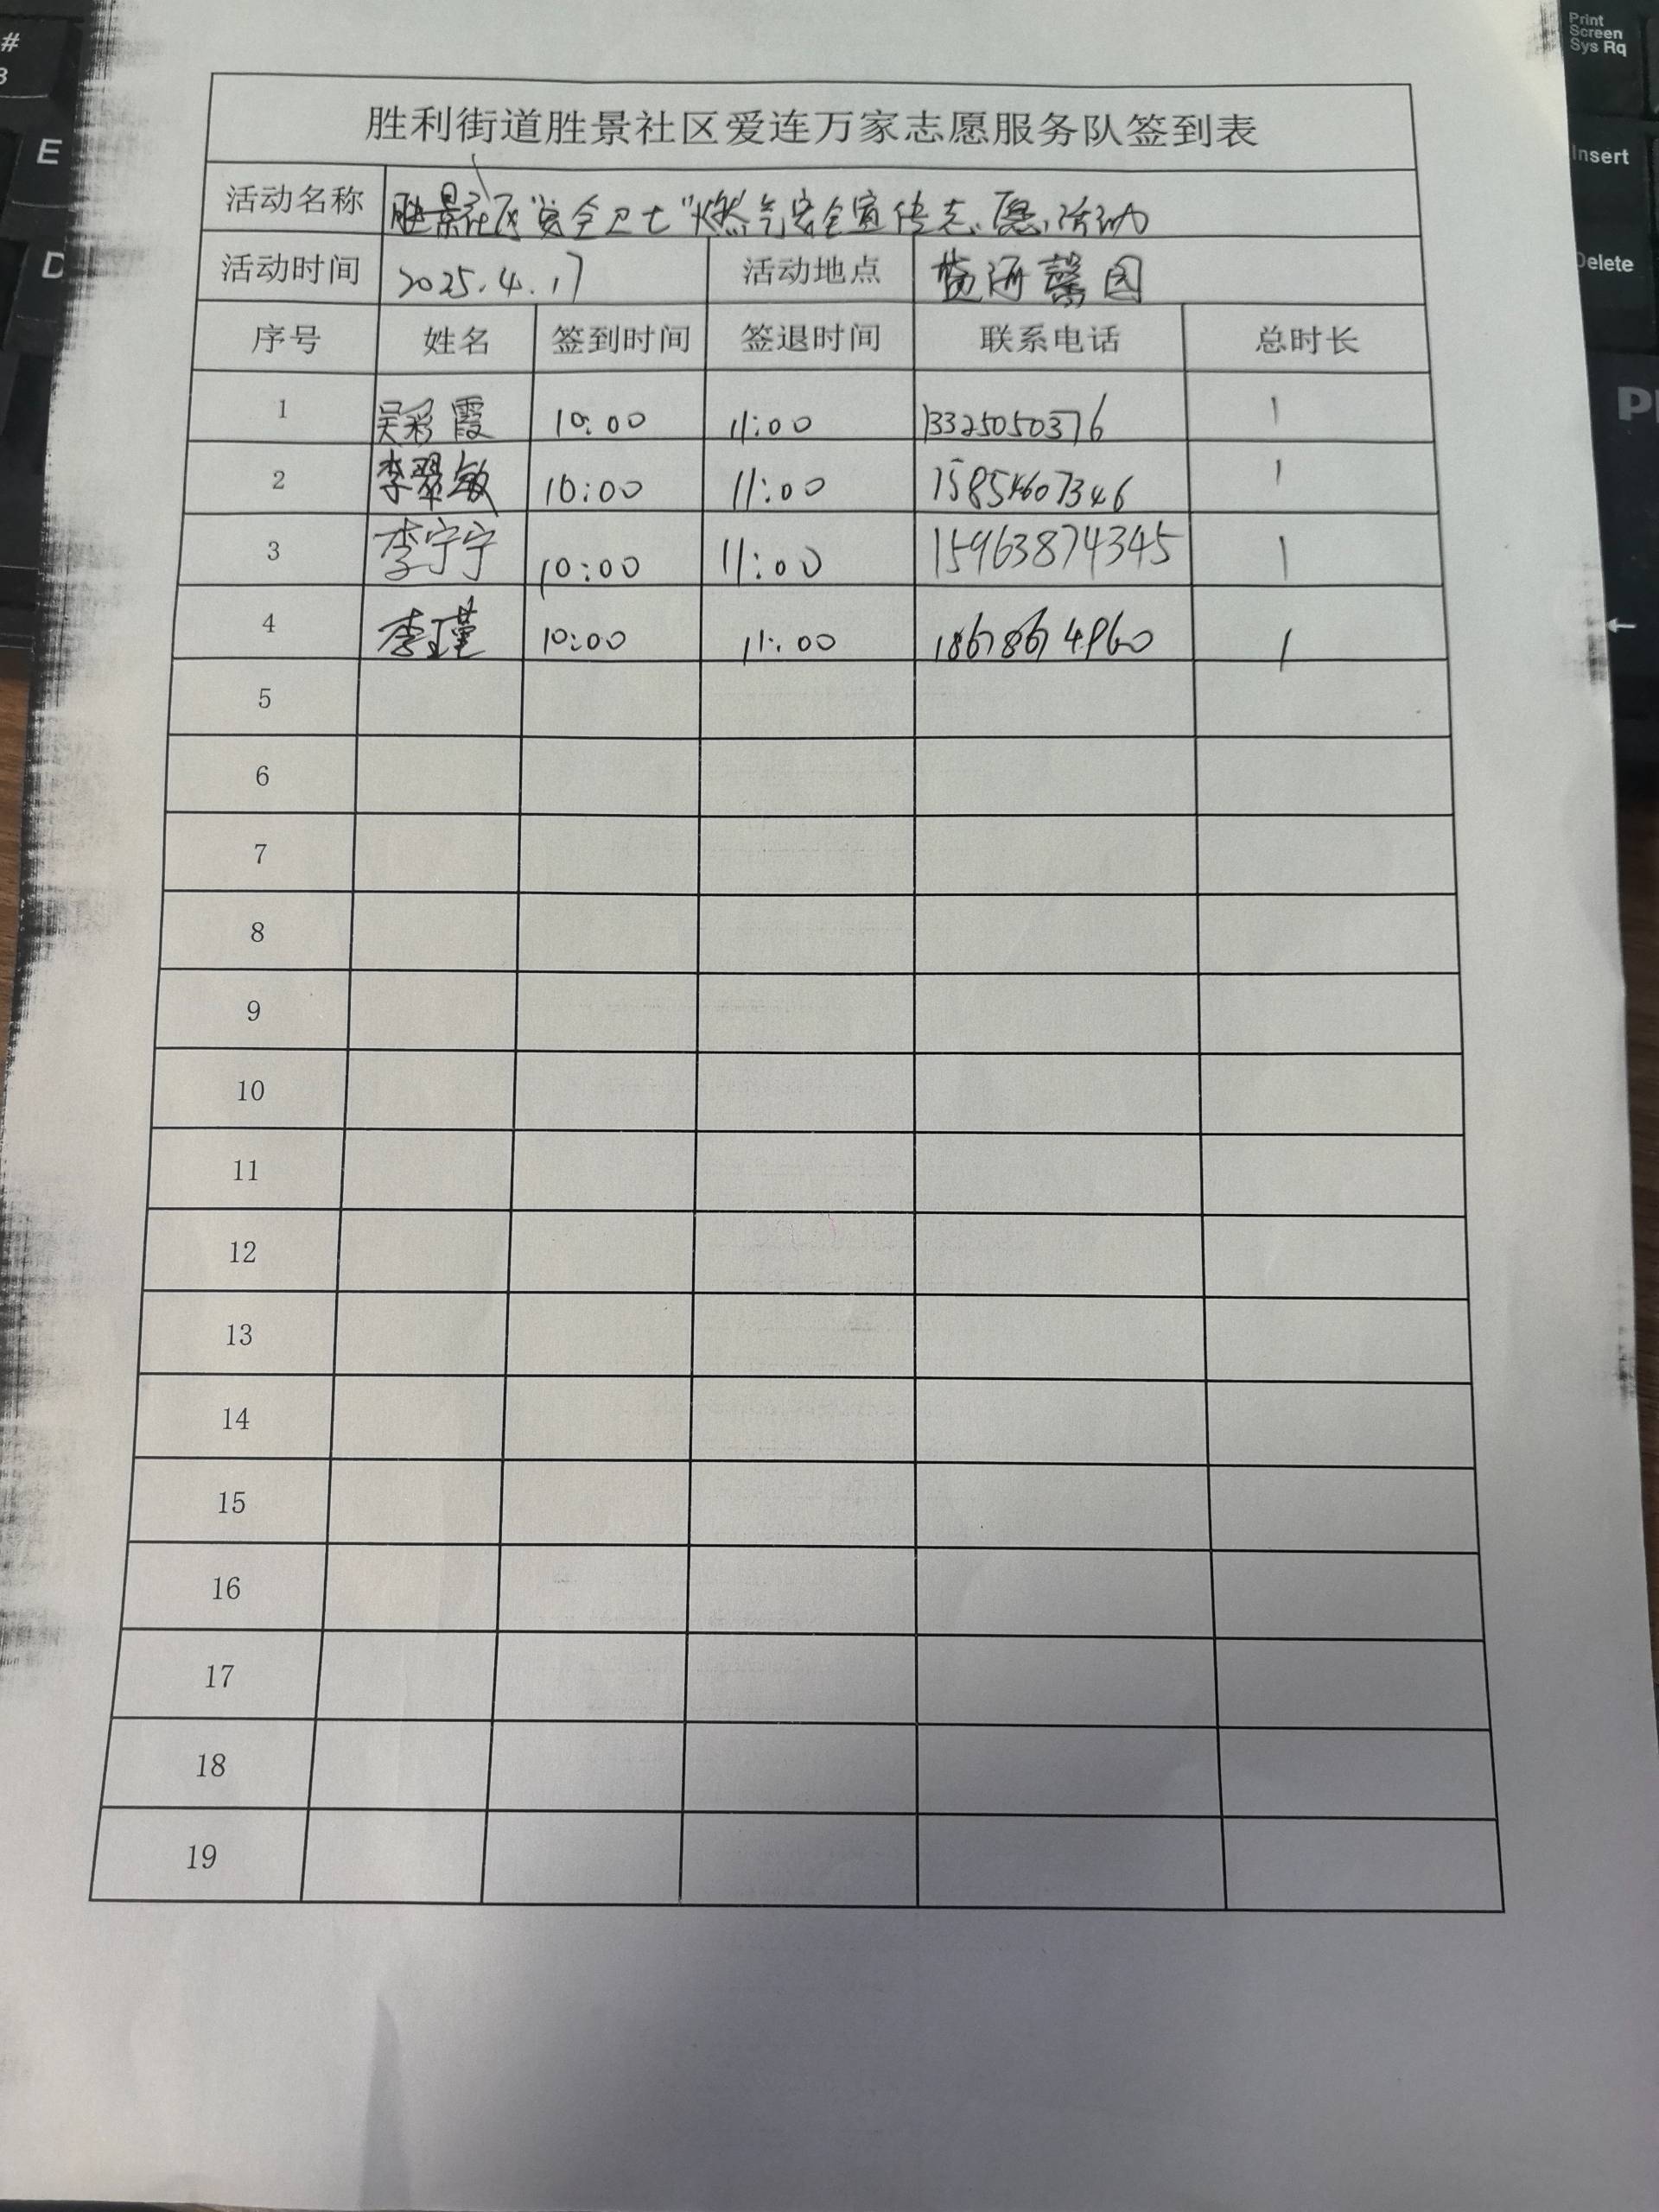 胜利街道胜景社区爱连万家志愿服务队签到表
活动名称 胜景社区"安全卫士"燃气安全宣传志愿活动
活动时间 2025.4.17 活动地点 海馨园
序号 姓名 签到时间 签退时间 联系电话 总时长
1 吴彩霞 10:00 11:00 13325050376 1
2 李翠敏 10:00 11:00 15854607346 1
3 李宁宁 10:00 11:00 15963874345 1
4 李瑾 10:00 11:00 18678674960 1
5
6
7
8
9
10
11
12
13
14
15
16
17
18
19
#
3
E
D
Print
Screen
Sys Rq
Insert
Delete
←